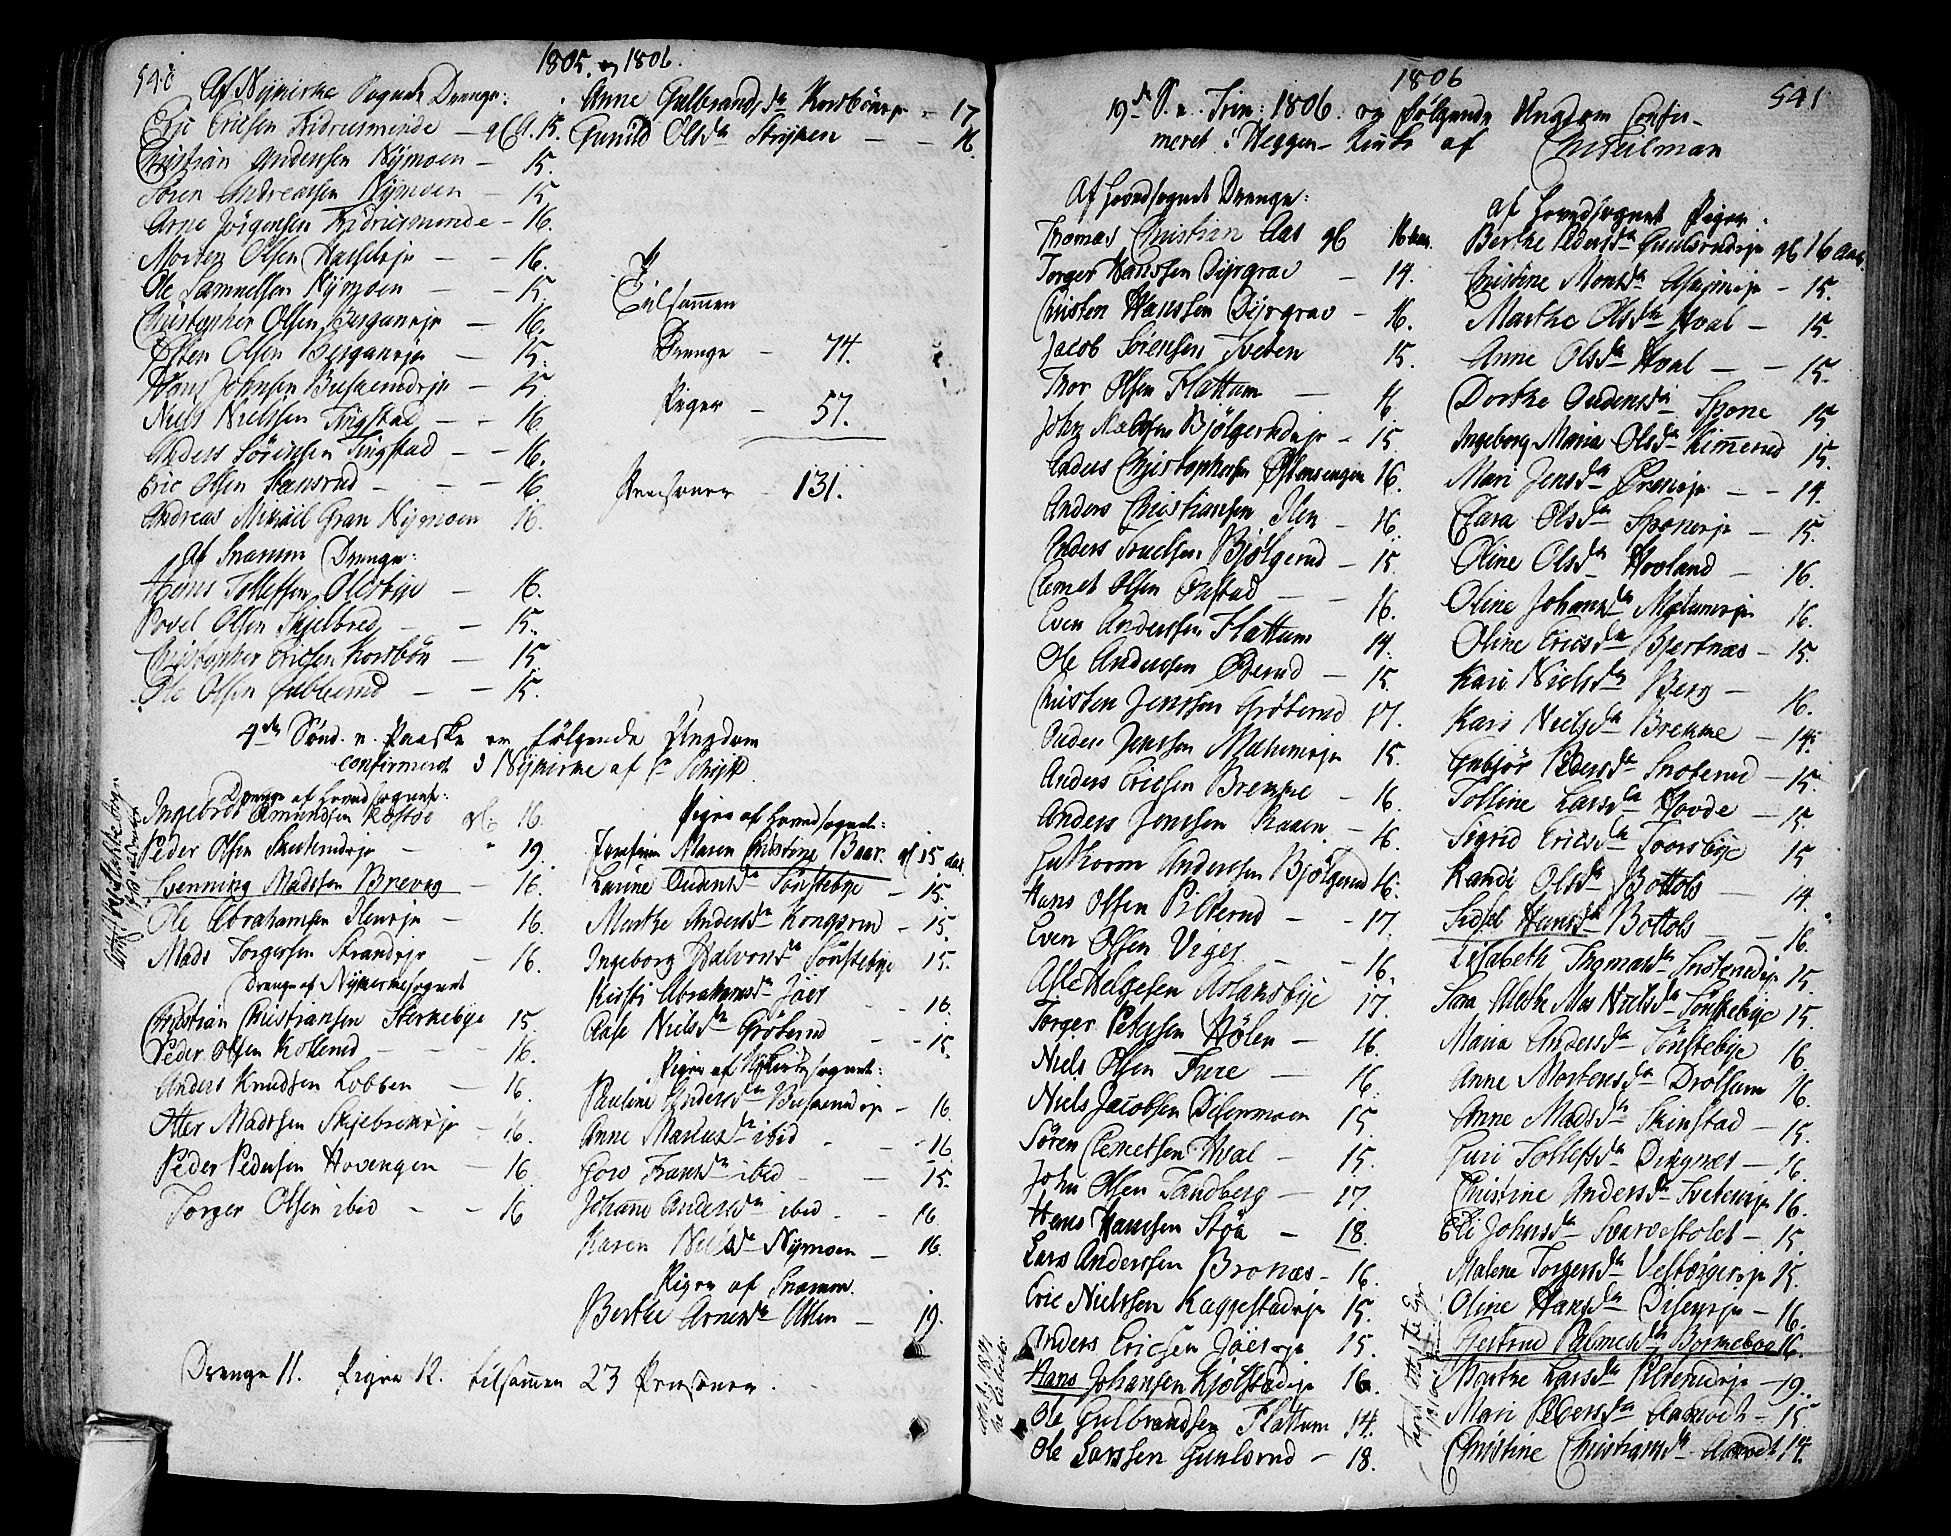 540
1805. og 1806.
Af Nykirke Sogns Drenge:
Eric Ericsen Fridricsminde — gl. A. 15.
Christian Andersen Nymoen — 15.
Søren Andreassen Nymoen — 15
Arne Jørgensen Fridricsminde — 16.
Morten Olsen Hasseleje — 16.
Ole Samuelsen Nymoen — 15.
Christopher Olsen Berganeje — 16.
Østen Olsen Berganeje — 15.
Hans Johnsen Buskerudeje — 15
Niels Nielssen Tingstad — 16.
Anders Sørensen Tingstad — 16.
Eric Olsen Hansrud — 16
Andreas Michael Gran Nymoen 16.
Af Snarum Drenge:
Hans Tollefsen Olesbye — 16.
Povel Olsen Skjelbred — 15.
Christopher Ericsen Korsbøn — 15.
Ole Olsen — 15.
Anne Gulbrandsda Korsbøneje — 17
Gunild Olsda Stryken — 16.
Tilsammen
Drenge — 74.
Piger — 57.
Personer — 131.
4de Sønd. n. Paaske er følgende Ungdom
confirmeret i Nykirke af
Drenge af Hovedsognet:
Ingebret Amundsen Kopsø gl. 16.
Peder Olsen Skuterudeje " 19.
Svenning Madssen Brevag — 16.
Ole Abrahamsen Ileneje — 16.
Mads Torgersen Strandeje — 16.
Drenge af Nykirkesognet
Christian Christiansen Sterkebye 15.
Peder Olsen Kolterud — 16.
Anders Knudsen Lobben — 16.
Otter Madssen Skjebrekeje — 16.
Peder Pedersen Hovengen — 16.
Torger Olsen ibid — 16
Piger af Hovedsognet:
Maren Christine Baar. gl 15 aar
Larine Oudensda Sønstebye — 15.
Marthe Andersda Kongsrud — 15.
Ingeborg Halvorsda Sønstebye 15.
Kirsti Abrahamsda Joer — 16.
Aase Nielsda Grøterud — 15.
Piger af Nykirkesognet:
Pauline Andersda Buskerudeje — 16.
Anne Mariusda ibid — 16.
Goro Fransda ibid — 15.
Johanne Andersda ibid — 16.
Karen Nielsda Nymoen — 16.
Piger af Snarum.
Berthe Arnesda Aslen — 19.
Drenge 11. Piger 12. tilsammen 23 Personer.
1806
541
19de S. n. Trin: 1806. er følgende Ungdom Confir-
meret i Heggen Kirke af
Af Hovedsognet Drenge:
Thomas Christian Aas gl 16 aar.
Torger Hanssen Dyrgrav — 14.
Christen Hanssen Dyrgrav — 16.
Jacob Sørensen Tveten 15.
Thor Olsen Flattum — 16.
John Olsen Bjølgerudeje — 15.
Anders Christophersen Østensengen 16.
Anders Christiansen Ilen — 16.
Anders Truelsen Bjølgerud — 15.
Clemet Olsen Onstad — 16.
Even Anderssen Flattum 14.
Ole Anderssen Øderud — 15.
Christen Jenssen Grøterud 17.
Ouden Jenssen Malumeje 15.
Anders Ericsen Brekke — 16.
Anders Jenssen Kaasen — 16.
Guthorm Anderssen Bjølgerud 16.
Hans Olsen Pilterud — 17.
Even Olsen Viger — 16.
Asle Helgesen Aslansbye 17.
Torger Petersen Hølen — 16.
Niels Olsen Fure — 16.
Niels Jacobsen Disenmoen 15.
Søren Clemetsen Hval — 15.
John Olsen Sandberg — 17.
Hans Hanssen Støa — 18.
Lars Anderssen Bronæs — 16.
Eric Nielssen Kaggestadeje 15.
Anders Ericsen Joereje 15.
Hans Johansen Kjølstadeje 16.
Ole Gulbrandsen Flattum 14.
Ole Larssen Gunlsrud — 18.
af Hovedsognet Piger:
Berthe Pedersda Gunlsrudeje gl 16 aar.
Christine Monsda — 15.
Marthe Olsda Hval — 15.
Anne Olsda Hval — 15.
Dorthe Oudensda Spone 15
Ingeborg Maria Olsda Kimerud 15.
Mari Jensda Øreneje — 14.
Clara Olsda Sponeeje — 15.
Oline Olsda Hovland — 16.
Oline Johansda Malumeje 16.
Oline Ericsda Bjertnæs — 15.
Kari Nielsda Berg — 16.
Kari Nielsda Brekke — 14.
Gubjør Pedersda Snoterud — 15.
Tolline Larsda Hovde — 15.
Sigrid Ericsda Toorsbye 15
Randi Olsda Bottols — 14.
Sidsel Hansda Bottols — 16.
Lisabeth Thomasda Snoterudeje 15.
Sara Nielsda Sønstebye 15.
Maria Andersda Sønstebye 16.
Anne Mortensda Drolsum 16.
Anne Madsda Skinstad — 15.
Guri Tollefsda Dingnæs — 16.
Christine Andersda Tveteneje 16.
Eli Johnsda Svarvestolet — 15.
Malene Torgersda Vesbørgereje 15.
Oline Hansda Diseneje — 16.
Gertrud Palmesda 16.
Marthe Larsda Pilterudeje — 19.
Mari Pedersda Aamodt — 15.
Christine Christiansda Aamodt 14.